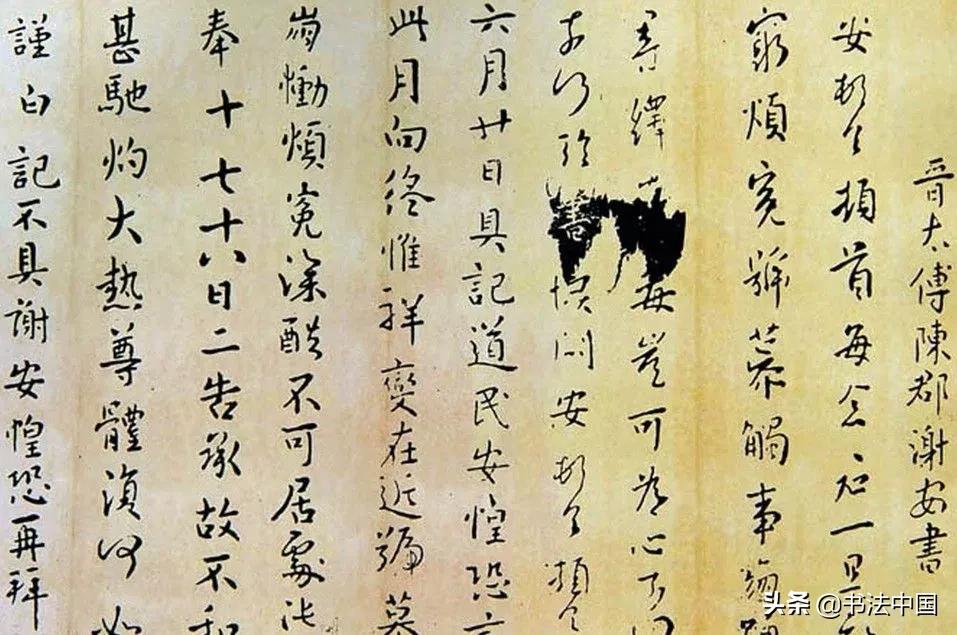 晋太傅陳郡謝安書
安頓首頓首每念君一旦
窮煩冤號慕觸事崩踴
尋繹荼毒豈可為心奈何
奈何臨書悽悶安頓首頓首
六月廿日具記道民安惶恐言
此月向終惟祥變在近號慕
崩慟煩冤深酷不可居處比
奉十七十八日二告承故不和
甚馳灼大熱尊體復何如
謹白記不具謝安惶恐再拜
头条 @书法中国